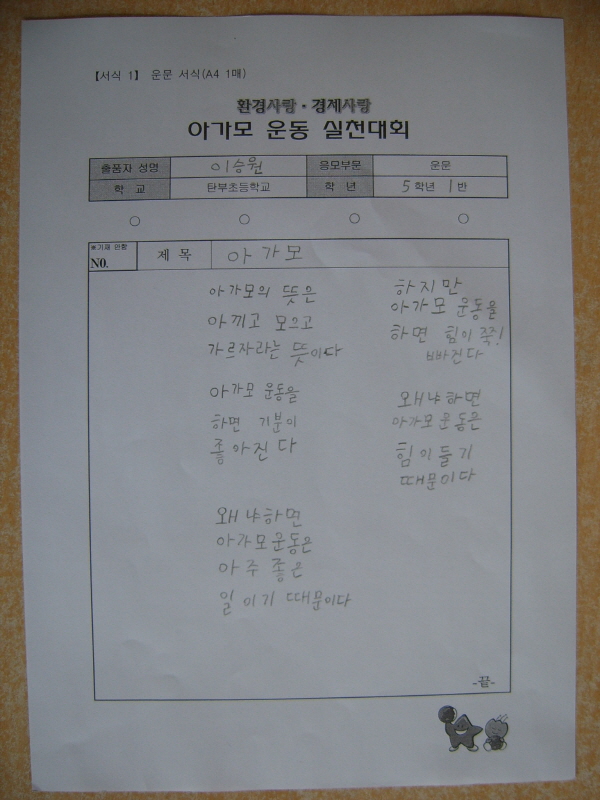 【서식 1】 운문 서식(A4 1매)
환경사랑·경제사랑
아가모 운동 실천대회
출품자 성명 이승원 응모부문 운문
학 교 탄부초등학교 학 년 5학년 1반
○ ○ ○ ○
※기재 안함
NO.
제 목 아가모
아가모의 뜻은
아끼고 모으고
가르자라는 뜻이다
아가모 운동을
하면 기분이
좋아진다
왜냐하면
아가모운동은
아주 좋은
일이기 때문이다
하지만
아가모 운동을
하면 힘이 쭉!
빠진다
왜냐하면
아가모운동은
힘이들기
때문이다
-끝-